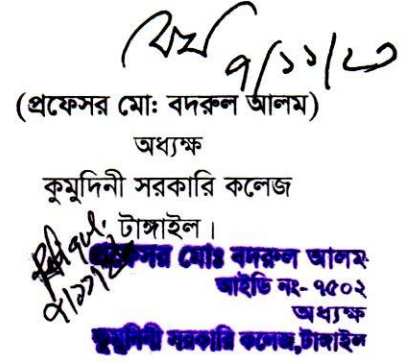 ৭/১১/২৩
(প্রফেসর মো: বদরুল আলম)
অধ্যক্ষ
কুমুদিনী সরকারি কলেজ
টাঙ্গাইল।
প্রফেসর মোঃ বদরুল আলম
আইডি নং- ৭৫০২
অধ্যক্ষ
কুমুদিনী সরকারি কলেজ,টাঙ্গাইল